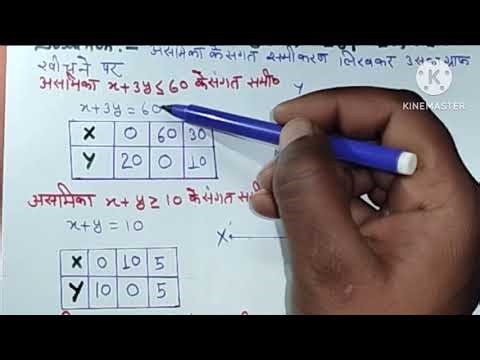 असमिका के संगत समीकरण लिखकर उसका ग्राफ
खींचने पर
असमिका x+3y ≤ 60 के संगत समी०
Y
x+3y = 60
X 0 60 30
Y 20 0 10
असमिका x+y ≥ 10 के संगत समी
x+y = 10
X'
X 0 10 5
Y 10 0 5
KINEMASTER